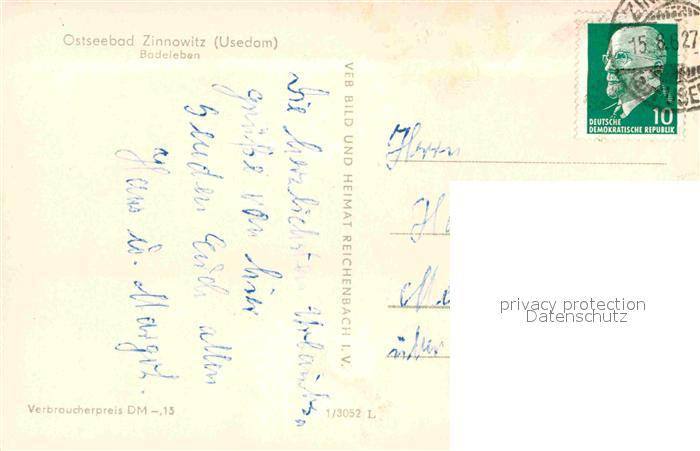 Ostseebad Zinnowitz (Usedom)
Badeleben
Die herzlichsten Urlaubs-
grüße von hier
senden Euch allen
Hans u. Margot.
VEB BILD UND HEIMAT REICHENBACH I. V.
Verbraucherpreis DM –,15
1/3052 L
15.8.62
DEUTSCHE
DEMOKRATISCHE REPUBLIK
10
Herrn
über
privacy protection
Datenschutz